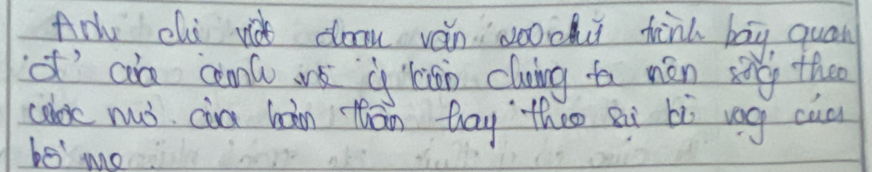 Anh chị viết đoạn văn 200 chữ trình bày quan
của về ý kiến chúng ta nên sống theo
ước mơ của bản thân hay theo sự kì vọng của
bố mẹ